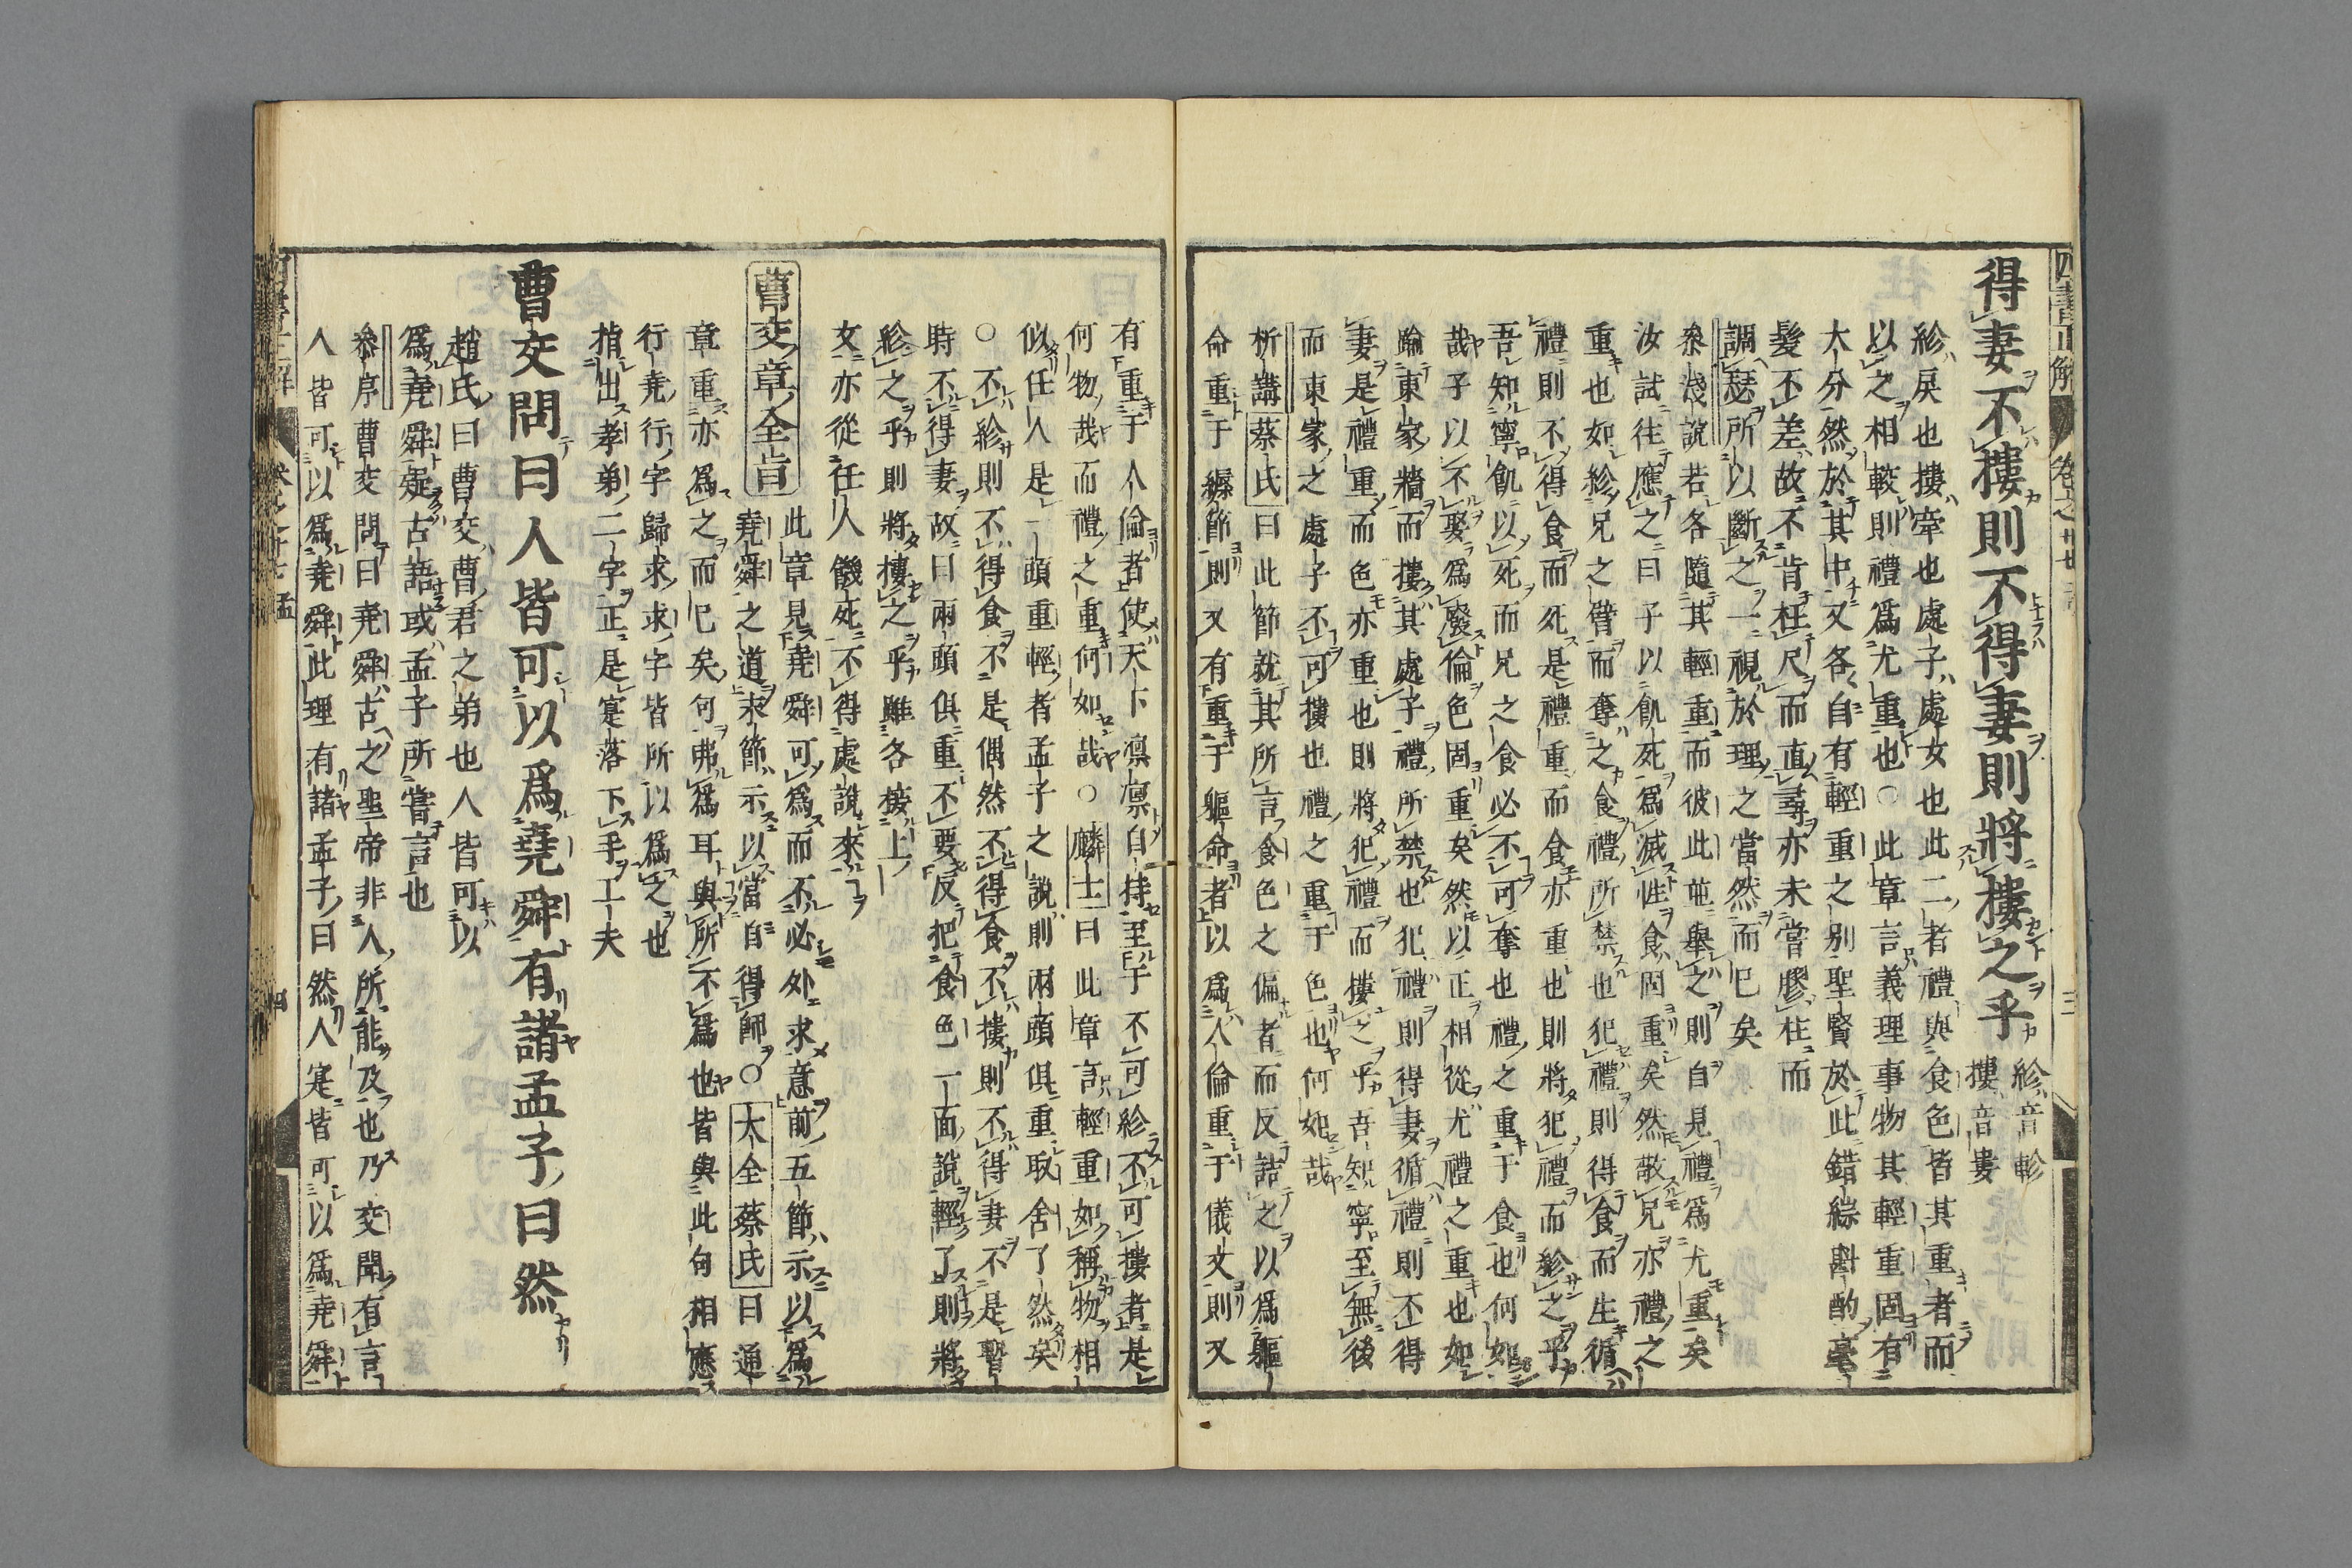 四書正解 卷之廿七 三
得妻不摟則不得妻則將摟之乎
紾音軫
摟音婁
紾戾也摟牽也處子處女也此二者禮與食色皆其重者而
以之相較則禮爲尤重也○此章言義理事物其輕重固有
大分然於其中又各自有輕重之別聖賢於此錯綜斟酌毫
髮不差故不肯枉尺而直尋亦未嘗膠柱而
調瑟所以斷之一視於理之當然而已矣
叅淺說若各隨其輕重而彼此並舉之則自見禮爲尤重矣
汝試往應之曰子以飢死爲滅性食固重矣然敬兄亦禮之
重也如紾兄之臂而奪之食禮所禁也犯禮則得食而生循
禮則不得食而死是禮重而食亦重也則將犯禮而紾之乎
吾知寧飢以死而兄之食必不可奪也禮之重于食也何如
哉子以不娶爲廢倫色固重矣然以正相從尤禮之重也如
踰東家牆而摟其處子禮所禁也犯禮則得妻循禮則不得
妻是禮重而色亦重也則將犯禮而摟之乎吾知寧至無後
而東家之處子不可摟也禮之重于色也何如哉
析講蔡氏曰此節就其所言食色之偏者而反詰之以爲軀
命重于縟節則又有重于軀命者以爲人倫重于儀文則又
有重于人倫者使天下凛凛自持至于不可紾不可摟者是
何物哉而禮之重何如哉○麟士曰此章言輕重如稱物相
似任人是一頭重輕者孟子之說則兩頭俱重取舍了然矣
○不紾則不得食不是偶然不得食不摟則不得妻不是暫
時不得妻故曰兩頭俱重不要反把食色一面說輕了則將
紾之乎則將摟之乎雖各接上
文亦從任人饑死不得處說來
曹交章全旨
此章見堯舜可爲而不必外求意前五節示以爲
堯舜之道末節示以當自得師○大全蔡氏曰通
章重亦爲之而已矣句弗爲耳與所不爲也皆與此句相應
行堯行字歸求求字皆所以爲之也
指出孝弟二字正是寔落下手工夫
曹交問曰人皆可以爲堯舜有諸孟子曰然
趙氏曰曹交曹君之弟也人皆可以
爲堯舜疑古語或孟子所嘗言也
叅序曹交問曰堯舜古之聖帝非人所能及也乃交聞有言
人皆可以爲堯舜此理有諸孟子曰然人寔皆可以爲堯舜